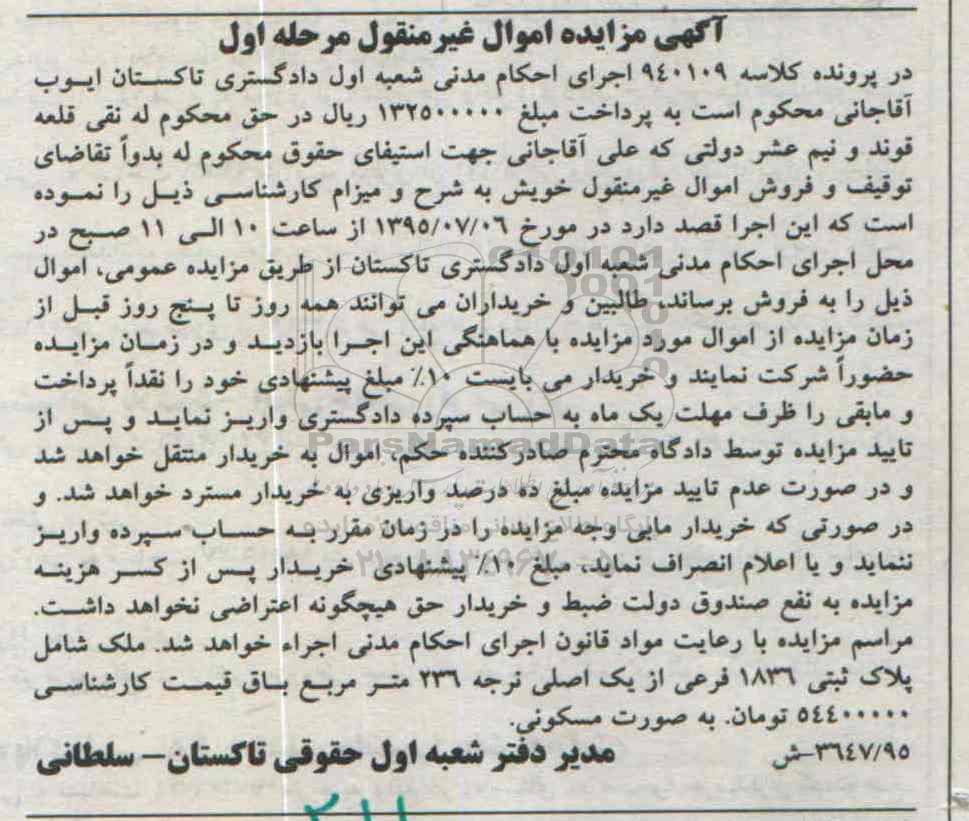 آگهی مزایده اموال غیرمنقول مرحله اول
در پرونده کلاسه ۹٤۰۱۰۹ اجرای احکام مدنی شعبه اول دادگستری تاکستان ایوب
آقاجانی محکوم است به پرداخت مبلغ ۱۳۲٥۰۰۰۰۰۰ ریال در حق محکوم له نقی قلعه
قوند و نیم عشر دولتی که علی آقاجانی جهت استیفای حقوق محکوم له بدواً تقاضای
توقیف و فروش اموال غیرمنقول خویش به شرح و میزام کارشناسی ذیل را نموده
است که این اجرا قصد دارد در مورخ ۱۳۹٥/۰۷/۰٦ از ساعت ۱۰ الی ۱۱ صبح در
محل اجرای احکام مدنی شعبه اول دادگستری تاکستان از طریق مزایده عمومی، اموال
ذیل را به فروش برساند، طالبین و خریداران می توانند همه روز تا پنج روز قبل از
زمان مزایده از اموال مورد مزایده با هماهنگی این اجرا بازدید و در زمان مزایده
حضوراً شرکت نمایند و خریدار می بایست ۱۰٪ مبلغ پیشنهادی خود را نقداً پرداخت
و مابقی را ظرف مهلت یک ماه به حساب سپرده دادگستری واریز نماید و پس از
ParsNamadData
تایید مزایده توسط دادگاه محترم صادرکننده حکم، اموال به خریدار منتقل خواهد شد
و در صورت عدم تایید مزایده مبلغ ده درصد واریزی به خریدار مسترد خواهد شد. و
در صورتی که خریدار مابی وجه مزایده را در زمان مقرر به حساب سپرده واریز
ننماید و یا اعلام انصراف نماید، مبلغ ۱۰٪ پیشنهادی خریدار پس از کسر هزینه
مزایده به نفع صندوق دولت ضبط و خریدار حق هیچگونه اعتراضی نخواهد داشت.
مراسم مزایده با رعایت مواد قانون اجرای احکام مدنی اجراء خواهد شد. ملک شامل
پلاک ثبتی ۱۸۳٦ فرعی از یک اصلی نرجه ۲۳٦ متر مربع باق قیمت کارشناسی
٥٤٤۰۰۰۰۰ تومان. به صورت مسکونی.
۳٦٤۷/۹٥-ش مدیر دفتر شعبه اول حقوقی تاکستان- سلطانی
۲۱۱